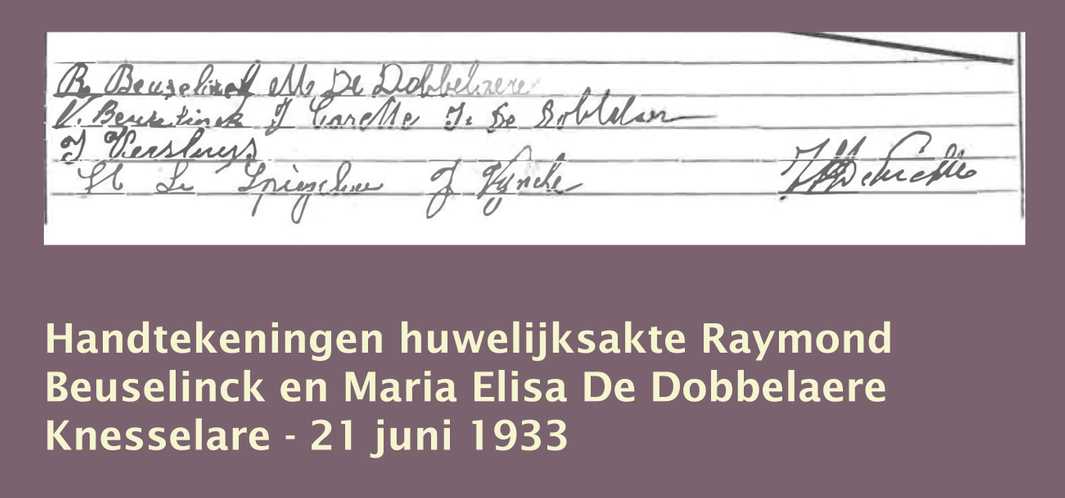 R. Beuselinck M De Dobbelaere
V. Beuselinck J Carette J. De Dobbelaere
J Versluys
De J Vyncke
Handtekeningen huwelijksakte Raymond
Beuselinck en Maria Elisa De Dobbelaere
Knesselare - 21 juni 1933